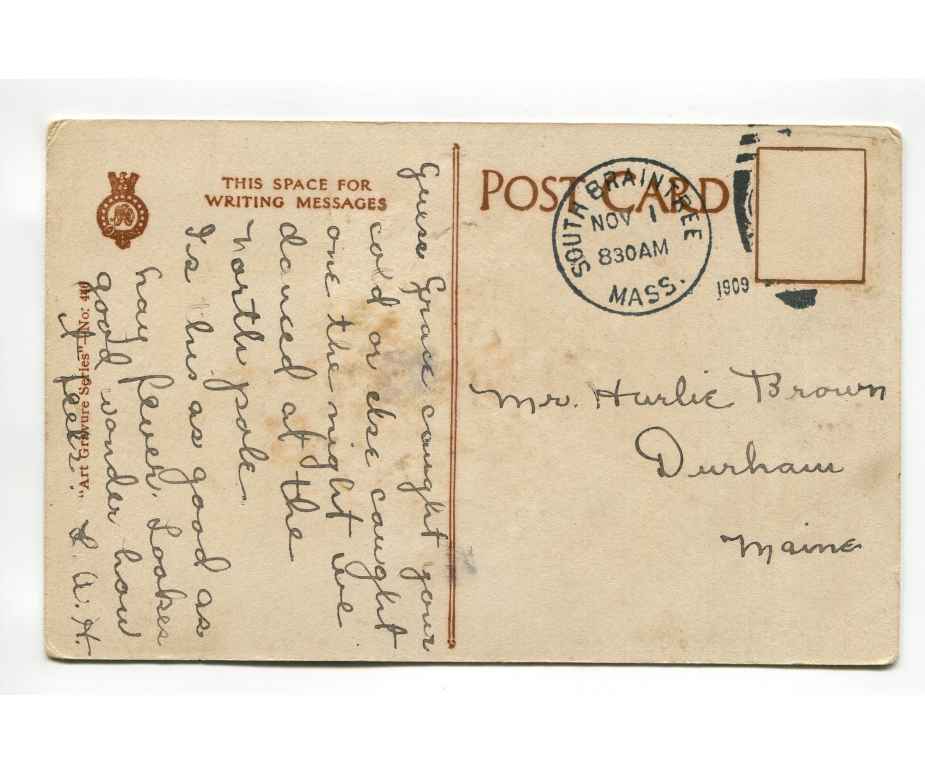 THIS SPACE FOR
WRITING MESSAGES
POST CARD
SOUTH BRAINTREE
NOV 1
830AM
MASS.
1909
Guess Grace caught your
cold or else caught
one the night we
danced at the
North pole.
Is his as good as
hay fever. Looks
good wonder how
L. W. H.
"Art Gravure Series"—No:
Mr. Hurlie Brown
Durham
Maine